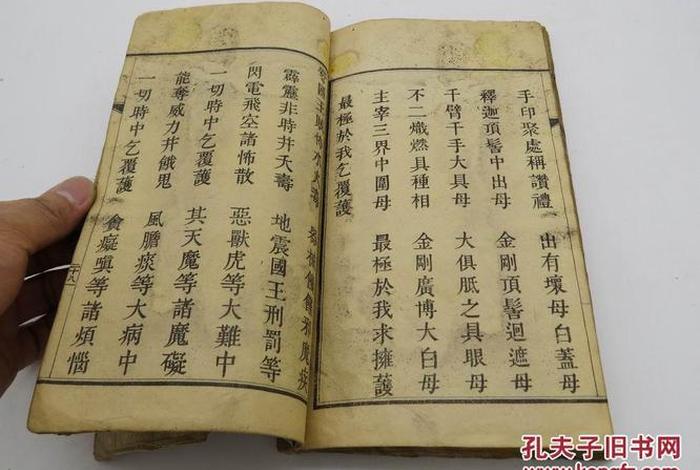 手印聚處稱讚禮 出有壞母白蓋母
釋迦頂髻中出母 金剛頂髻迴遮母
千臂千手大具母 大俱胝之具眼母
不二熾燃具種相 金剛廣博大白母
主宰三界中圍母 最極於我求擁護
最極於我乞覆護
國王
霹靂非時并夭壽 地震國王刑罰等
閃電飛空諸怖散 惡獸虎等大難中
一切時中乞覆護 其天魔等諸魔礙
能奪威力并餓鬼 風膽痰等大病中
一切時中乞覆護 貪癡嗔等諸煩惱
十八
孔夫子旧书网